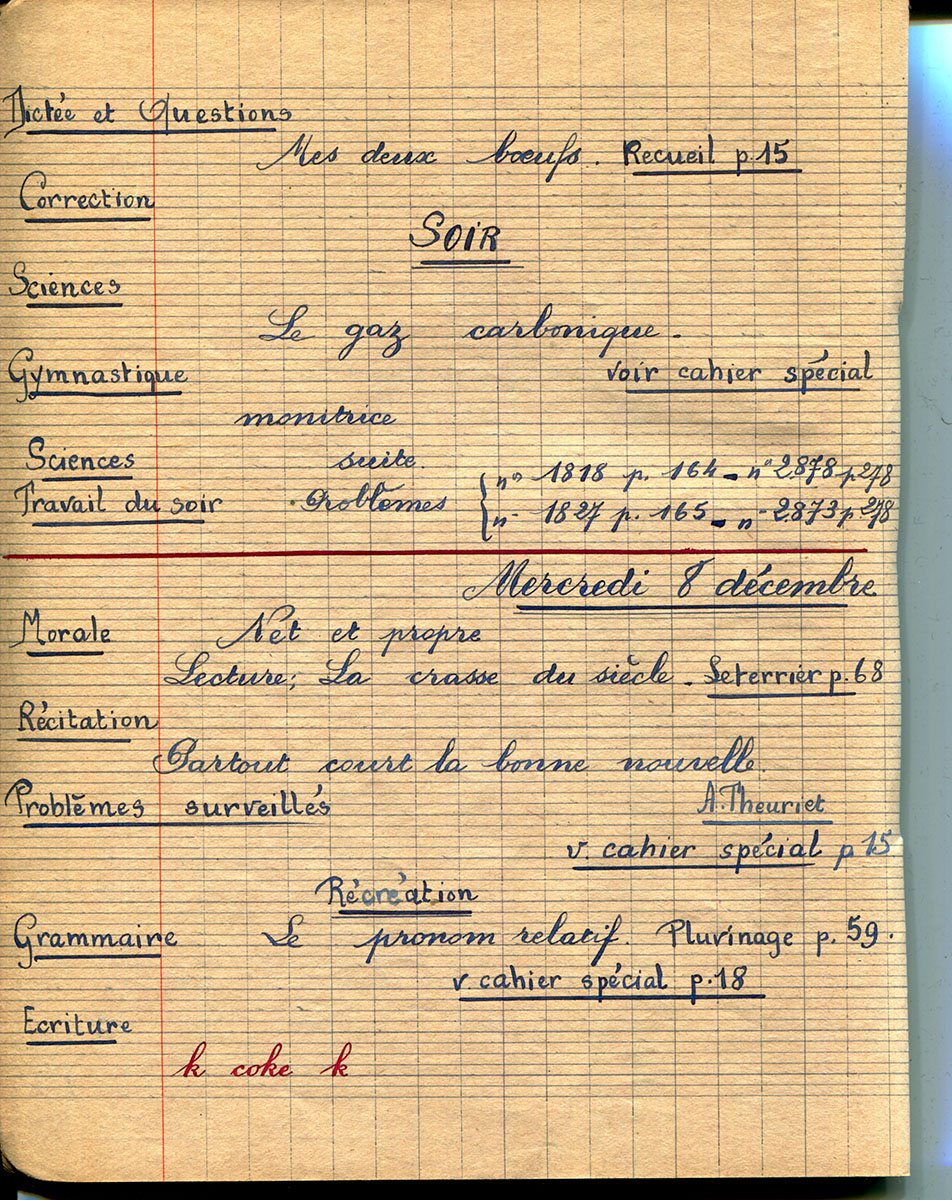 Dictée et Questions
Mes deux bœufs. Recueil p.15
Correction
SOIR
Sciences
Le gaz carbonique.
Gymnastique voir cahier spécial
monitrice
Sciences suite.
Travail du soir Problèmes { n° 1818 p. 164 - n° 2878 p 278
n- 1827 p. 165 - n- 2873 p. 278
Mercredi 8 décembre
Morale Net et propre
Lecture: La crasse du siècle. Leterrier p. 68
Récitation
Partout court la bonne nouvelle.
Problèmes surveillés A. Theuriet
v. cahier spécial p 15
Récréation
Grammaire Le pronom relatif. Pluvinage p. 59.
v cahier spécial p. 18
Ecriture
k coke k